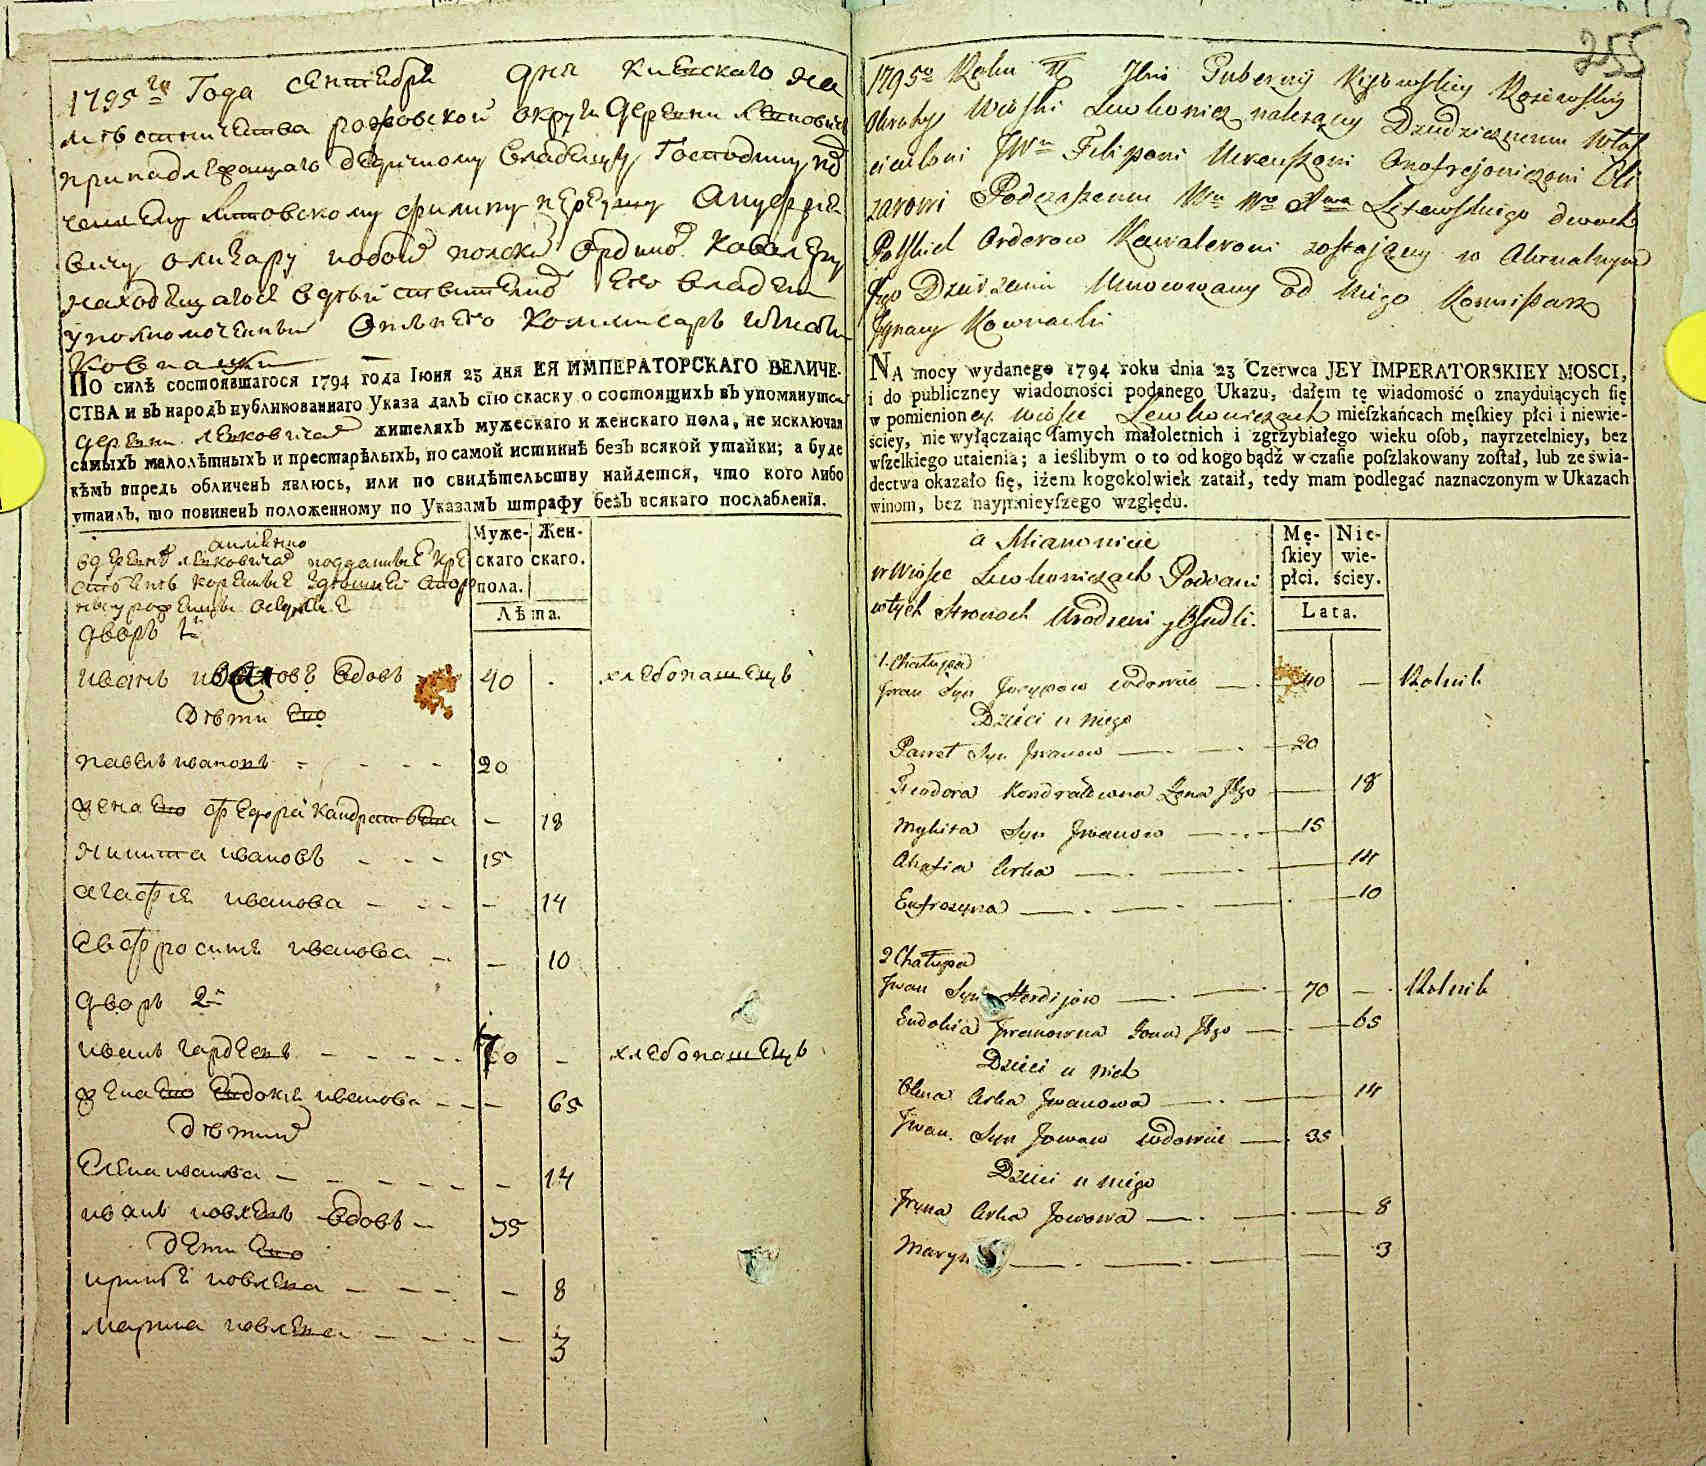 255
1795го Года сентебра дня киевскаго на
местничества округи деревни
принадлежащаго дедичному владельцу Господину под
чешему литовскому филипу Ануфрие
вичу олизару обоих полских Ординов Кавалеру
находящагося в действителном Его владени
уполномоченный От него Коммисар игнаты
Ковнацки
ПО силѣ состоявшагося 1794 года Іюня 23 дня ЕЯ ИМПЕРАТОРСКАГО ВЕЛИЧЕ-
СТВА и въ народъ публикованнаго Указа далъ сію скаску о состоящихъ въ упомянутой
деревни левковичах жителяхъ мужескаго и женскаго пола, не исключая
самыхъ малолѣтныхъ и престарѣлыхъ, по самой истиннѣ безъ всякой утайки; а буде
кѣмъ впредь обличенъ явлюсь, или по свидѣтельству найдется, что кого либо
утаилъ, то повиненъ положенному по Указамъ штрафу безъ всякаго послабленія.
Муже- Жен-
скаго скаго.
пола.
Лѣта.
а имянно
в деревне левковичах подданные
двор 1й
иван вдовъ 40 - хлебопашецъ
Дѣти Его
павелъ ивановъ - - - - 20
жена Его федора кандратьева - 18
никита ивановъ - - - 15
агафия иванова - - - - 14
Евфросиня иванова - - 10
дворъ 2й
иванъ гардеевъ - - - - - 70 - хлебопашецъ
жена Его Евдокия иванова - - - 65
дѣти их
Елена иванова - - - - - - 14
иванъ иовлевъ вдовъ - 35
дети Его
ирина иовлева - - - - 8
марина иовлева - - - - 3
1795o Roku Dnia Guberni Kijowskiey
Okrubu Wioski Lewkowicz należącey Dziedzicznemu Właś
cicielowi JWu Filiponi Onofrejowiczowi Oli
zarowi Podczaszemu Wu Litewskiego dwoch
Polskich Orderow Kawalerowi zostającey w Aktualnym
Jego Dzierżeniu Umocowany od Niego Kommissarz
Jgnacy Kownacki
NA mocy wydanego 1794 roku dnia 23 Czerwca JEY IMPERATORSKIEY MOSCI,
i do publiczney wiadomości podanego Ukazu, dałem tę wiadomość o znayduiących się
w pomienioney Wiosce Lewkowiczach mieſzkańcach męſkiey płci i niewie-
ściey, nie wyłączaiąc ſamych małoletnich i zgrzybiałego wieku oſob, nayrzetelniey, bez
wſzelkiego utaienia; a ieślibym o to od kogo bądź w czaſie poſzlakowany zoſtał, lub ze świa-
dectwa okazało ſię, iżem kogokolwiek zataił, tedy mam podlegać naznaczonym w Ukazach
winom, bez naymnieyſzego względu.
Mę- Nie-
ſkiey wie-
płci. ściey.
Lata.
a Mianowicie
w Wiosce Lewkowiczach Poddani
w tych Stronach Urodzeni y Osiedli.
1. Chałupa
Jwan Syn Jozypow wdowiec — 40 — Rolnik
Dzieci u niego
Paweł Syn Jwanow — . — . — 20
Fieodora Kondratowna Zona Jego — 18
Mykita Syn Jwanow — . . — 15
Ahafia Corka — . — . — 14
Eufrozyna — . — . — . — 10
2 Chałupa
Jwan Syn Hordijow — . — . 70 — . Rolnik
Eudokia Jwanowna Zona Jego — . — 65
Dzieci u nich
Olena Corka Jwanowa — . — 14
Jwan Syn Jowow wdowiec — . 35
Dzieci u niego
Jryna Corka Jowowa — . — . — 8
Maryna — . — . — . — 3